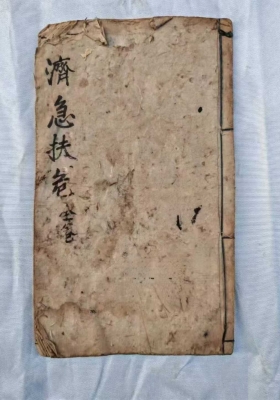 濟急扶危全卷